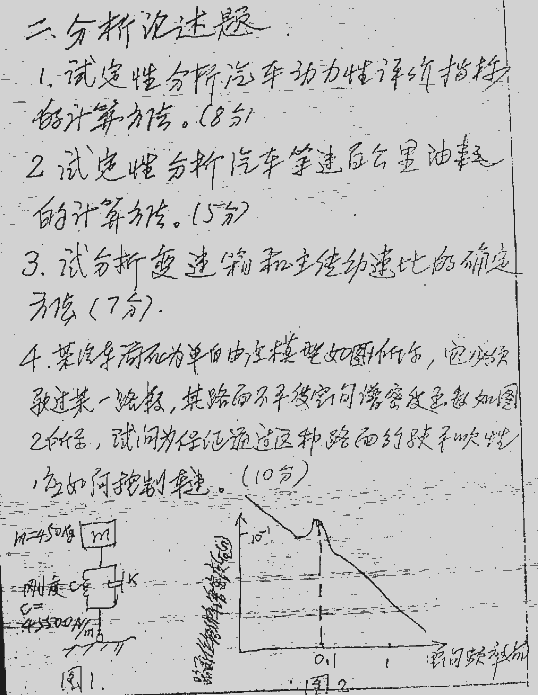 二、分析论述题
1. 试定性分析汽车动力性评价指标
的计算方法。(8分)
2 试定性分析汽车等速百公里油耗
的计算方法。(5分)
3. 试分析变速箱和主传动速比的确定
方法(7分).
4. 某汽车简化为单自由度模型如图1所示, 它必须
驶过某一路段, 其路面不平度空间谱密度函数如图
2所示, 试问为保证通过这种路面的行驶平顺性
应如何控制车速。(10分)
m=450kg m
刚度 C K
C=
45500N/m
图1.
10⁻¹
0.1 1 空间频率
图2